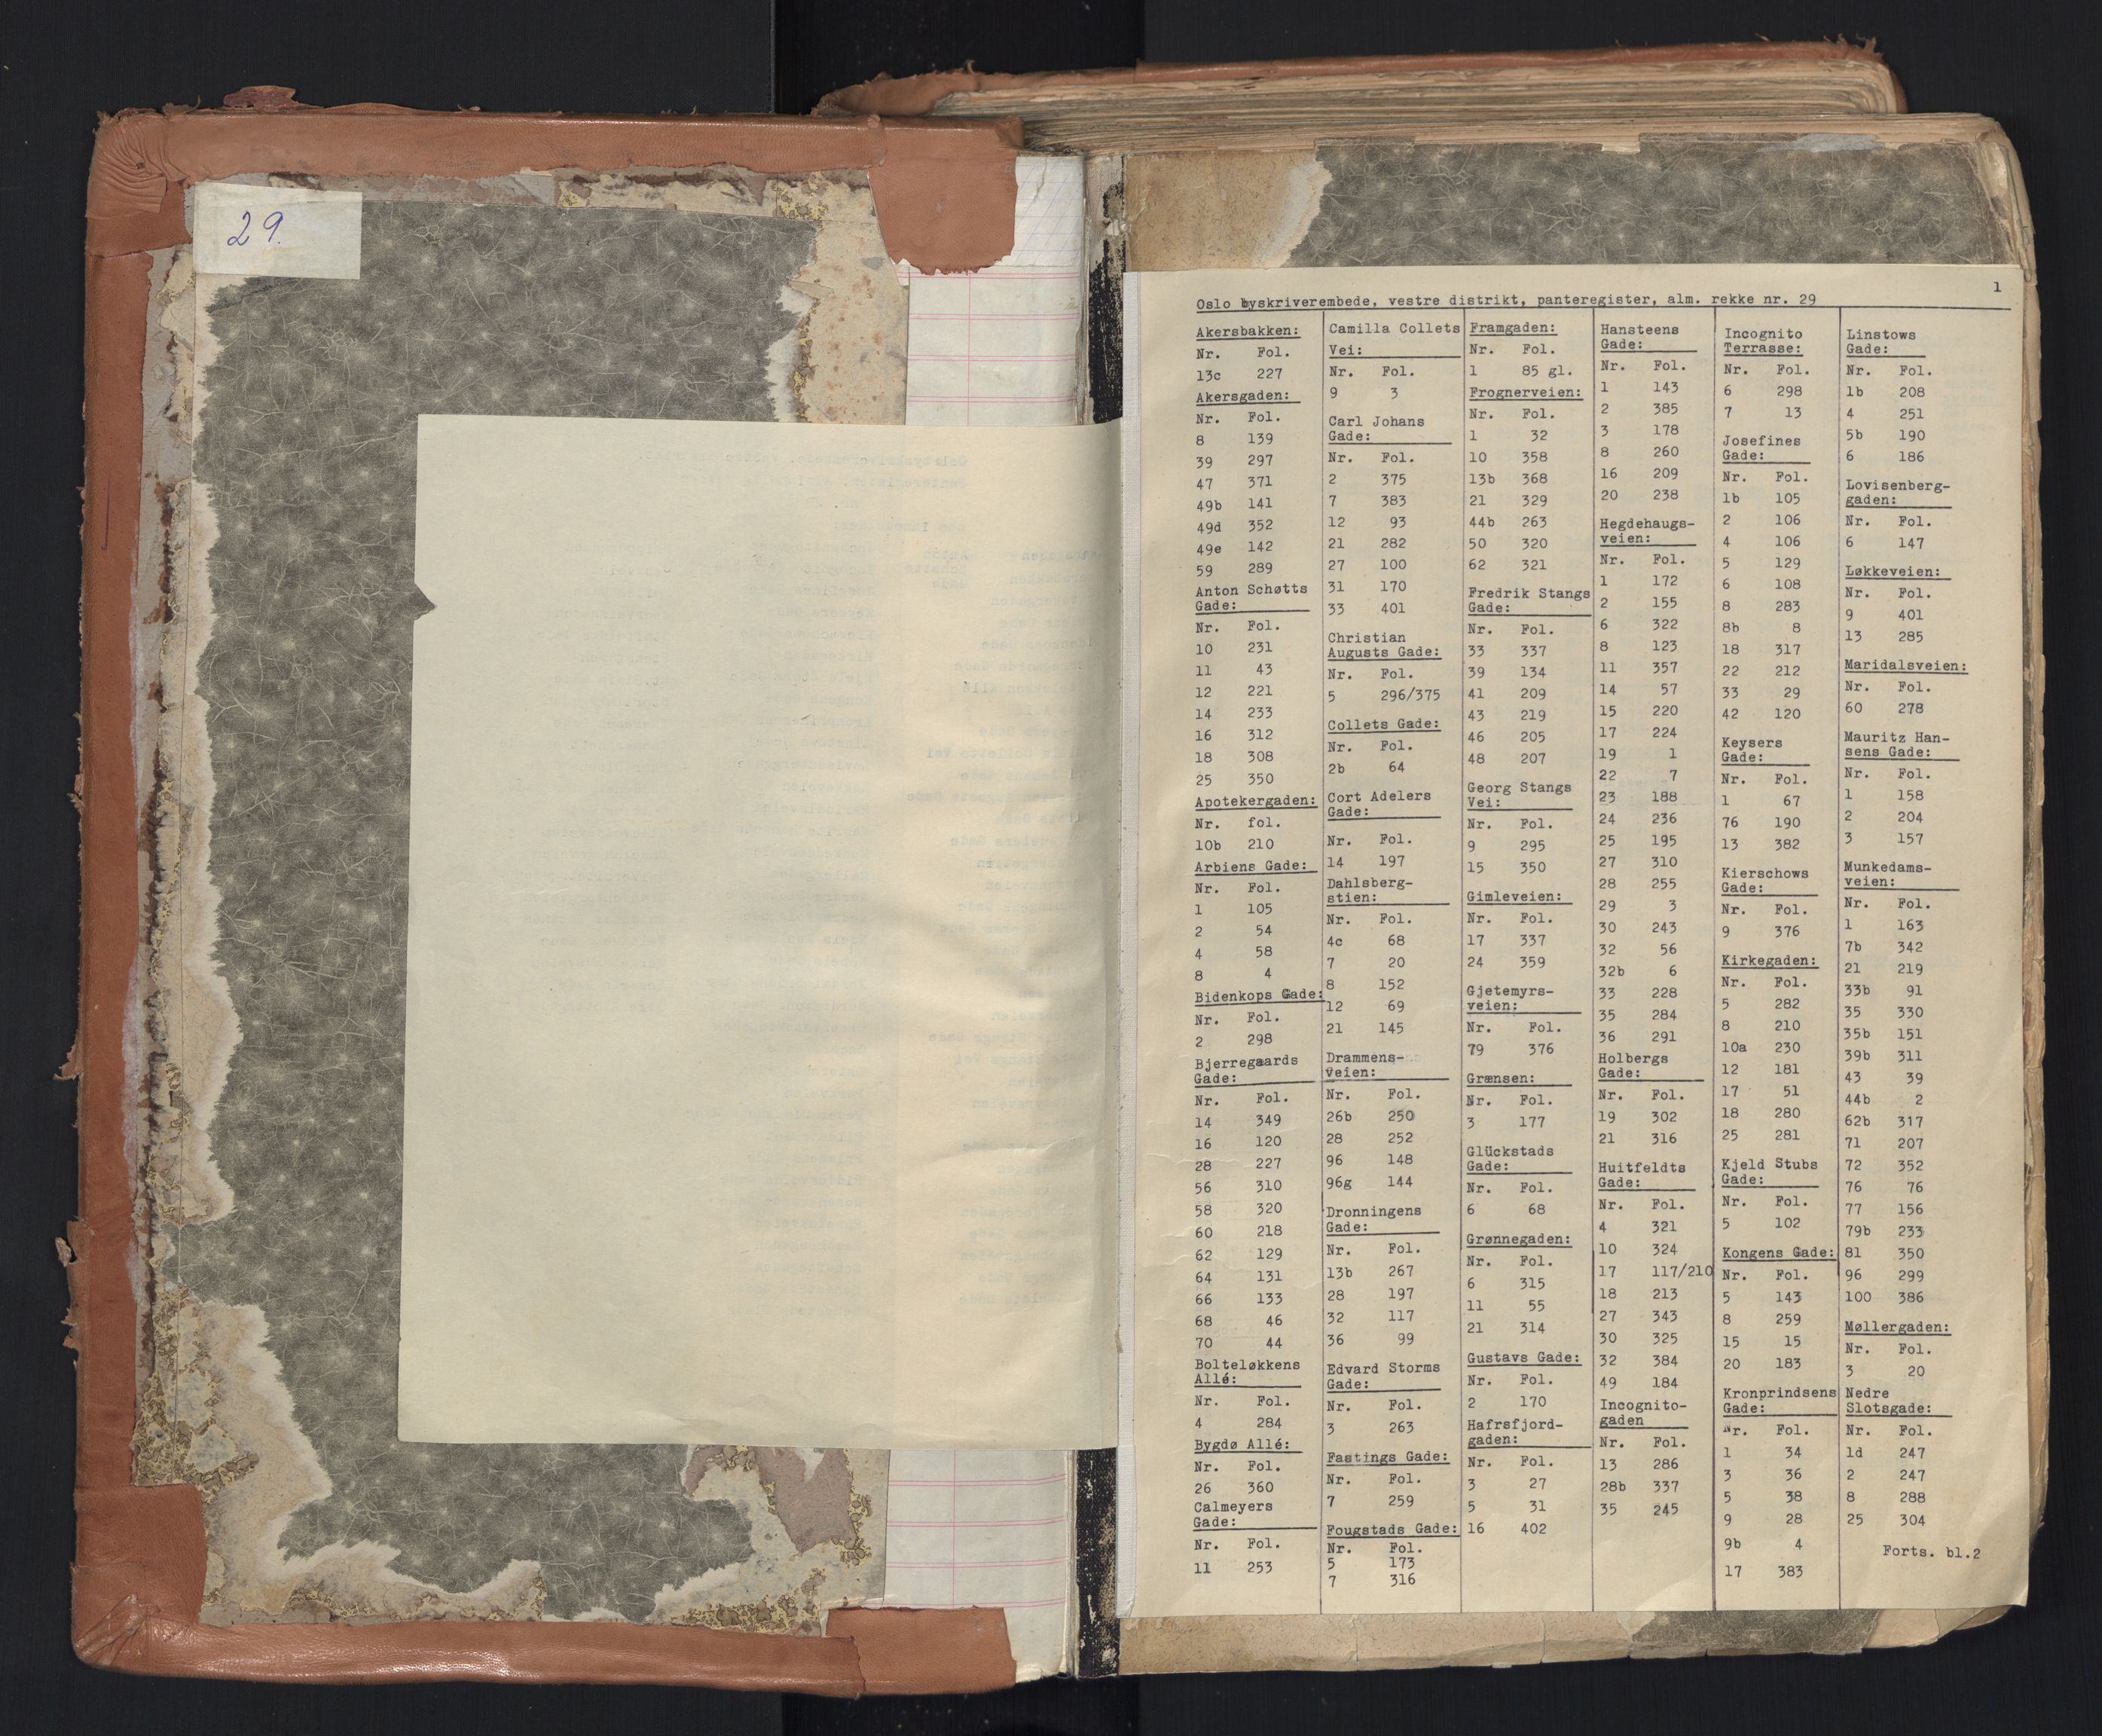 29.
1
Oslo byskriverembede, vestre distrikt, panteregister, alm. rekke nr. 29
Akersbakken:
Nr. Fol.
13c 227
Akersgaden:
Nr. Fol.
8 139
39 297
47 371
49b 141
49d 352
49e 142
59 289
Anton Schøtts
Gade:
Nr. Fol.
10 231
11 43
12 221
14 233
16 312
18 308
25 350
Apotekergaden:
Nr. fol.
10b 210
Arbiens Gade:
Nr. Fol.
1 105
2 54
4 58
8 4
Bidenkops Gade:
Nr. Fol.
2 298
Bjerregaards
Gade:
Nr. Fol.
14 349
16 120
28 227
56 310
58 320
60 218
62 129
64 131
66 133
68 46
70 44
Bolteløkkens
Allé:
Nr. Fol.
4 284
Bygdø Allé:
Nr. Fol.
26 360
Calmeyers
Gade:
Nr. Fol.
11 253
Camilla Collets
Vei:
Nr. Fol.
9 3
Carl Johans
Gade:
Nr. Fol.
2 375
7 383
12 93
21 282
27 100
31 170
33 401
Christian
Augusts Gade:
Nr. Fol.
5 296/375
Collets Gade:
Nr. Fol.
2b 64
Cort Adelers
Gade:
Nr. Fol.
14 197
Dahlsberg-
stien:
Nr. Fol.
4c 68
7 20
8 152
12 69
21 145
Drammens-
veien:
Nr. Fol.
26b 250
28 252
96 148
96g 144
Dronningens
Gade:
Nr. Fol.
13b 267
28 197
32 117
36 99
Edvard Storms
Gade:
Nr. Fol.
3 263
Fastings Gade:
Nr. Fol.
7 259
Fougstads Gade:
Nr. Fol.
5 173
7 316
Framgaden:
Nr. Fol.
1 85 gl.
Frognerveien:
Nr. Fol.
1 32
10 358
13b 368
21 329
44b 263
50 320
62 321
Fredrik Stangs
Gade:
Nr. Fol.
33 337
39 134
41 209
43 219
46 205
48 207
Georg Stangs
Vei:
Nr. Fol.
9 295
15 350
Gimleveien:
Nr. Fol.
17 337
24 359
Gjetemyrs-
veien:
Nr. Fol.
79 376
Grænsen:
Nr. Fol.
3 177
Glückstads
Gade:
Nr. Fol.
6 68
Grønnegaden:
Nr. Fol.
6 315
11 55
21 314
Gustavs Gade:
Nr. Fol.
2 170
Hafrsfjord-
gaden:
Nr. Fol.
3 27
5 31
16 402
Hansteens
Gade:
Nr. Fol.
1 143
2 385
3 178
8 260
16 209
20 238
Hegdehaugs-
veien:
Nr. Fol.
1 172
2 155
6 322
8 123
11 357
14 57
15 220
17 224
19 1
22 7
23 188
24 236
25 195
27 310
28 255
29 3
30 243
32 56
32b 6
33 228
35 284
36 291
Holbergs
Gade:
Nr. Fol.
19 302
21 316
Huitfeldts
Gade:
Nr. Fol.
4 321
10 324
17 117/210
18 213
27 343
30 325
32 384
49 184
Incognito-
gaden
Nr. Fol.
13 286
28b 337
35 245
Incognito
Terrasse:
Nr. Fol.
6 298
7 13
Josefines
Gade:
Nr. Fol.
1b 105
2 106
4 106
5 129
6 108
8 283
8b 8
18 317
22 212
33 29
42 120
Keysers
Gade:
Nr. Fol.
1 67
76 190
13 382
Kierschows
Gade:
Nr. Fol.
9 376
Kirkegaden:
Nr. Fol.
5 282
8 210
10a 230
12 181
17 51
18 280
25 281
Kjeld Stubs
Gade:
Nr. Fol.
5 102
Kongens Gade:
Nr. Fol.
5 143
8 259
15 15
20 183
Kronprindsens
Gade:
Nr. Fol.
1 34
3 36
5 38
9 28
9b 4
17 383
Linstows
Gade:
Nr. Fol.
1b 208
4 251
5b 190
6 186
Lovisenberg-
gaden:
Nr. Fol.
6 147
Løkkeveien:
Nr. Fol.
9 401
13 285
Maridalsveien:
Nr. Fol.
60 278
Mauritz Han-
sens Gade:
Nr. Fol.
1 158
2 204
3 157
Munkedams-
veien:
Nr. Fol.
1 163
7b 342
21 219
33b 91
35 330
35b 151
39b 311
43 39
44b 2
62b 317
71 207
72 352
76 76
77 156
79b 233
81 350
96 299
100 386
Møllergaden:
Nr. Fol.
3 20
Nedre
Slotsgade:
Nr. Fol.
1d 247
2 247
8 288
25 304
Forts. bl.2